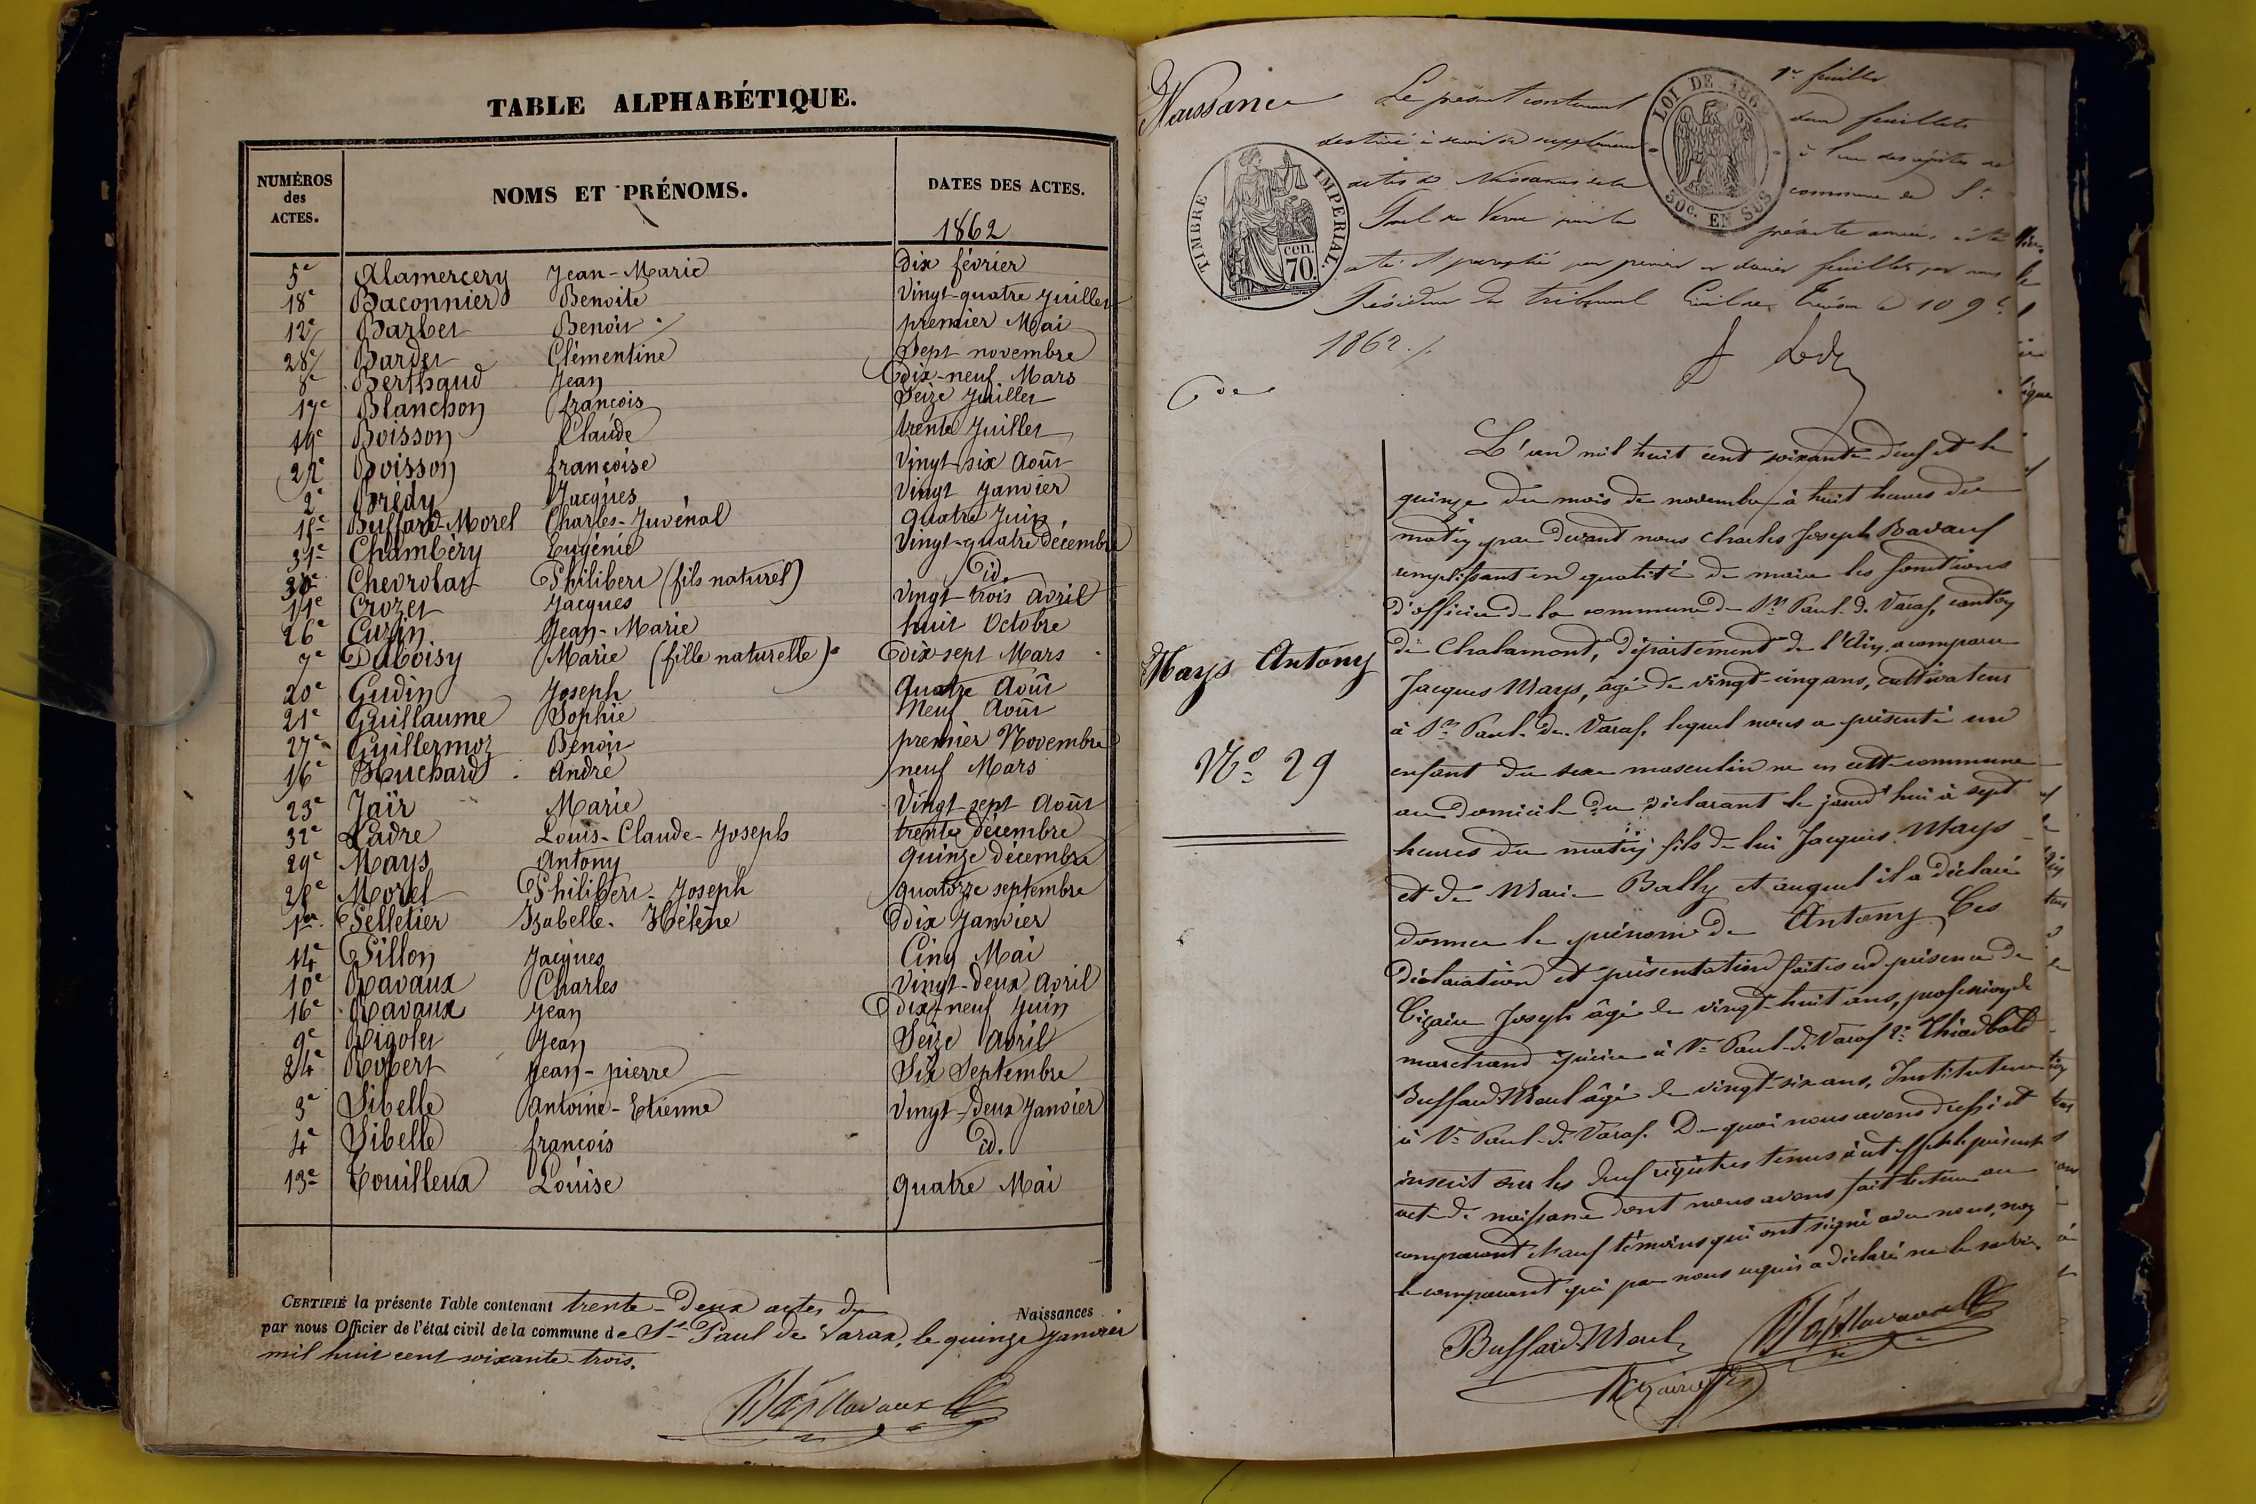 TABLE ALPHABÉTIQUE.
NUMÉROS des ACTES. NOMS ET PRÉNOMS. DATES DES ACTES.
1862
5e Alamercery Jean-Marie Dix février
18e Baconnier Benoite Vingt-quatre Juillet
12e Barbet Benoit premier Mai
28e Bardet Clémentine Sept novembre
8e Berthaud Jean Dix-neuf Mars
17e Blanchon françois Seize Juillet
19e Boisson Claude trente Juillet
22e Boisson françoise Vingt-six Août
2e Brédy Jacques Vingt Janvier
15e Buffard-Morel Charles-Juvénal quatre Juin
31e Chambéry Eugénie Vingt-quatre décembre
30e Chevrolat Philibert (fils naturel) id.
11e Crozet Jacques Vingt-trois avril
26e Curin Jean-Marie huit Octobre
7e Duboisy Marie (fille naturelle) Dix sept Mars
20e Gudin Joseph Quatre Août
21e Guillaume Sophie Neuf Août
27e Guillermoz Benoit premier Novembre
6e Huchard André neuf Mars
23e Jaïr Marie Vingt-sept Août
32e Ladre Louis-Claude-Joseph trente décembre
29e Mays Antony quinze décembre
25e Morel Philibert-Joseph quatorze septembre
1er Pelletier Isabelle-Hélène Dix Janvier
14e Pillon Jacques Cinq Mai
10e Ravaux Charles Vingt-deux Avril
16e Ravaux Jean Dix-neuf Juin
9e Rigolet Jean Seize Avril
24e Robert Jean-pierre Six Septembre
3e Sibelle Antoine-Etienne Vingt-deux Janvier
4e Sibelle françois id.
13e Touilleux Louise quatre Mai
CERTIFIÉ la présente Table contenant trente-deux actes de Naissances
par nous Officier de l'état civil de la commune de St Paul de Varax, le quinze Janvier
mil huit cent soixante-trois.
1er feuillet
Naissance
Le présent contenant deux feuillets
destiné à servir de supplément à l'un des registres de
actes de Naissances de la commune de St
Paul de Varax pour la présente année, a été
coté et paraphé par premier et dernier feuillet par nous
Président du tribunal Civil de Trévoux le 10 9e
1862
TIMBRE IMPERIAL.
cen. 70.
LOI DE 1862
50c. EN SUS
Mays Antony
No 29
L'an mil huit cent soixante-deux et le
quinze du mois de novembre à huit heures du
matin par devant nous Charles Joseph Ravaux
remplissant en qualité de maire les fonctions
d'officier de la commune de St Paul-de-Varax, canton
de Chalamont, département de l'Ain, a comparu
Jacques Mays, âgé de vingt-cinq ans, cultivateur
à St Paul-de-Varax, lequel nous a présenté un
enfant du sexe masculin né en cette commune
au domicile du déclarant le jourd'hui à sept
heures du matin fils de lui Jacques Mays
et de Marie Bally et auquel il a déclaré
donner le prénom de Antony Ces
déclaration et présentation faites en présence de
Joseph âgé de vingt-huit ans, profession de
marchand épicier à St Paul-de-Varax 2e
Buffard Morel âgé de vingt-six ans, Instituteur
à St Paul-de-Varax. De quoi nous avons dressé et
inscrit sur les deux registres tenus à cet effet le présent
acte de naissance dont nous avons fait lecture au
comparant et aux témoins qui ont signé avec nous, non
le comparant qui par nous requis a déclaré ne le savoir.
Buffard Morel